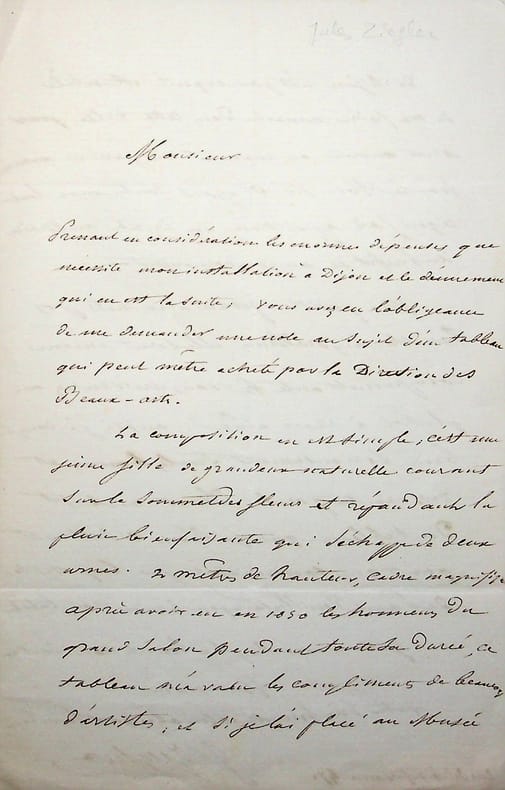 Jules Ziegler
Monsieur
Prenant en considération les enormes dépenses que
nécessite mon installation à Dijon et le dénuement
qui en est la suite, vous avez eu l'obligeance
de me demander une note au sujet d'un tableau
qui peut m'être acheté par la Direction des
Beaux-arts.
La composition en est simple, c'est une
jeune fille de grandeur naturelle courant
sur le sommet des fleurs et répandant la
pluie bienfaisante qui s'échappe de deux
urnes. 2 mètres de hauteur, cadre magnifique
après avoir eu en 1850 les honneurs du
grand Salon pendant toute sa durée, ce
tableau m'a valu les compliments de beaucoup
d'artistes, et si je l'ai placé au Musée